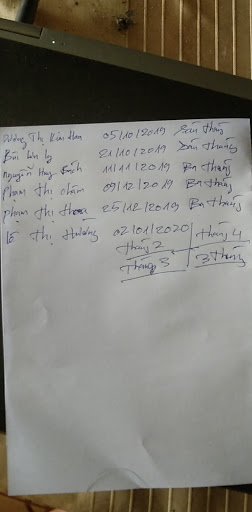 Dương Thị Kim Hoa 05/10/2019 Sáu tháng
Bùi Văn Ly 21/10/2019 Sáu tháng
Nguyễn Huy Bích 11/11/2019 Ba tháng
Phạm Thị Chăm 09/12/2019 Ba tháng
Phạm Thị Thoa 25/12/2019 Ba tháng
Lê Thị Hương 02/01/2020
tháng 2 tháng 4
Tháng 3 3 tháng